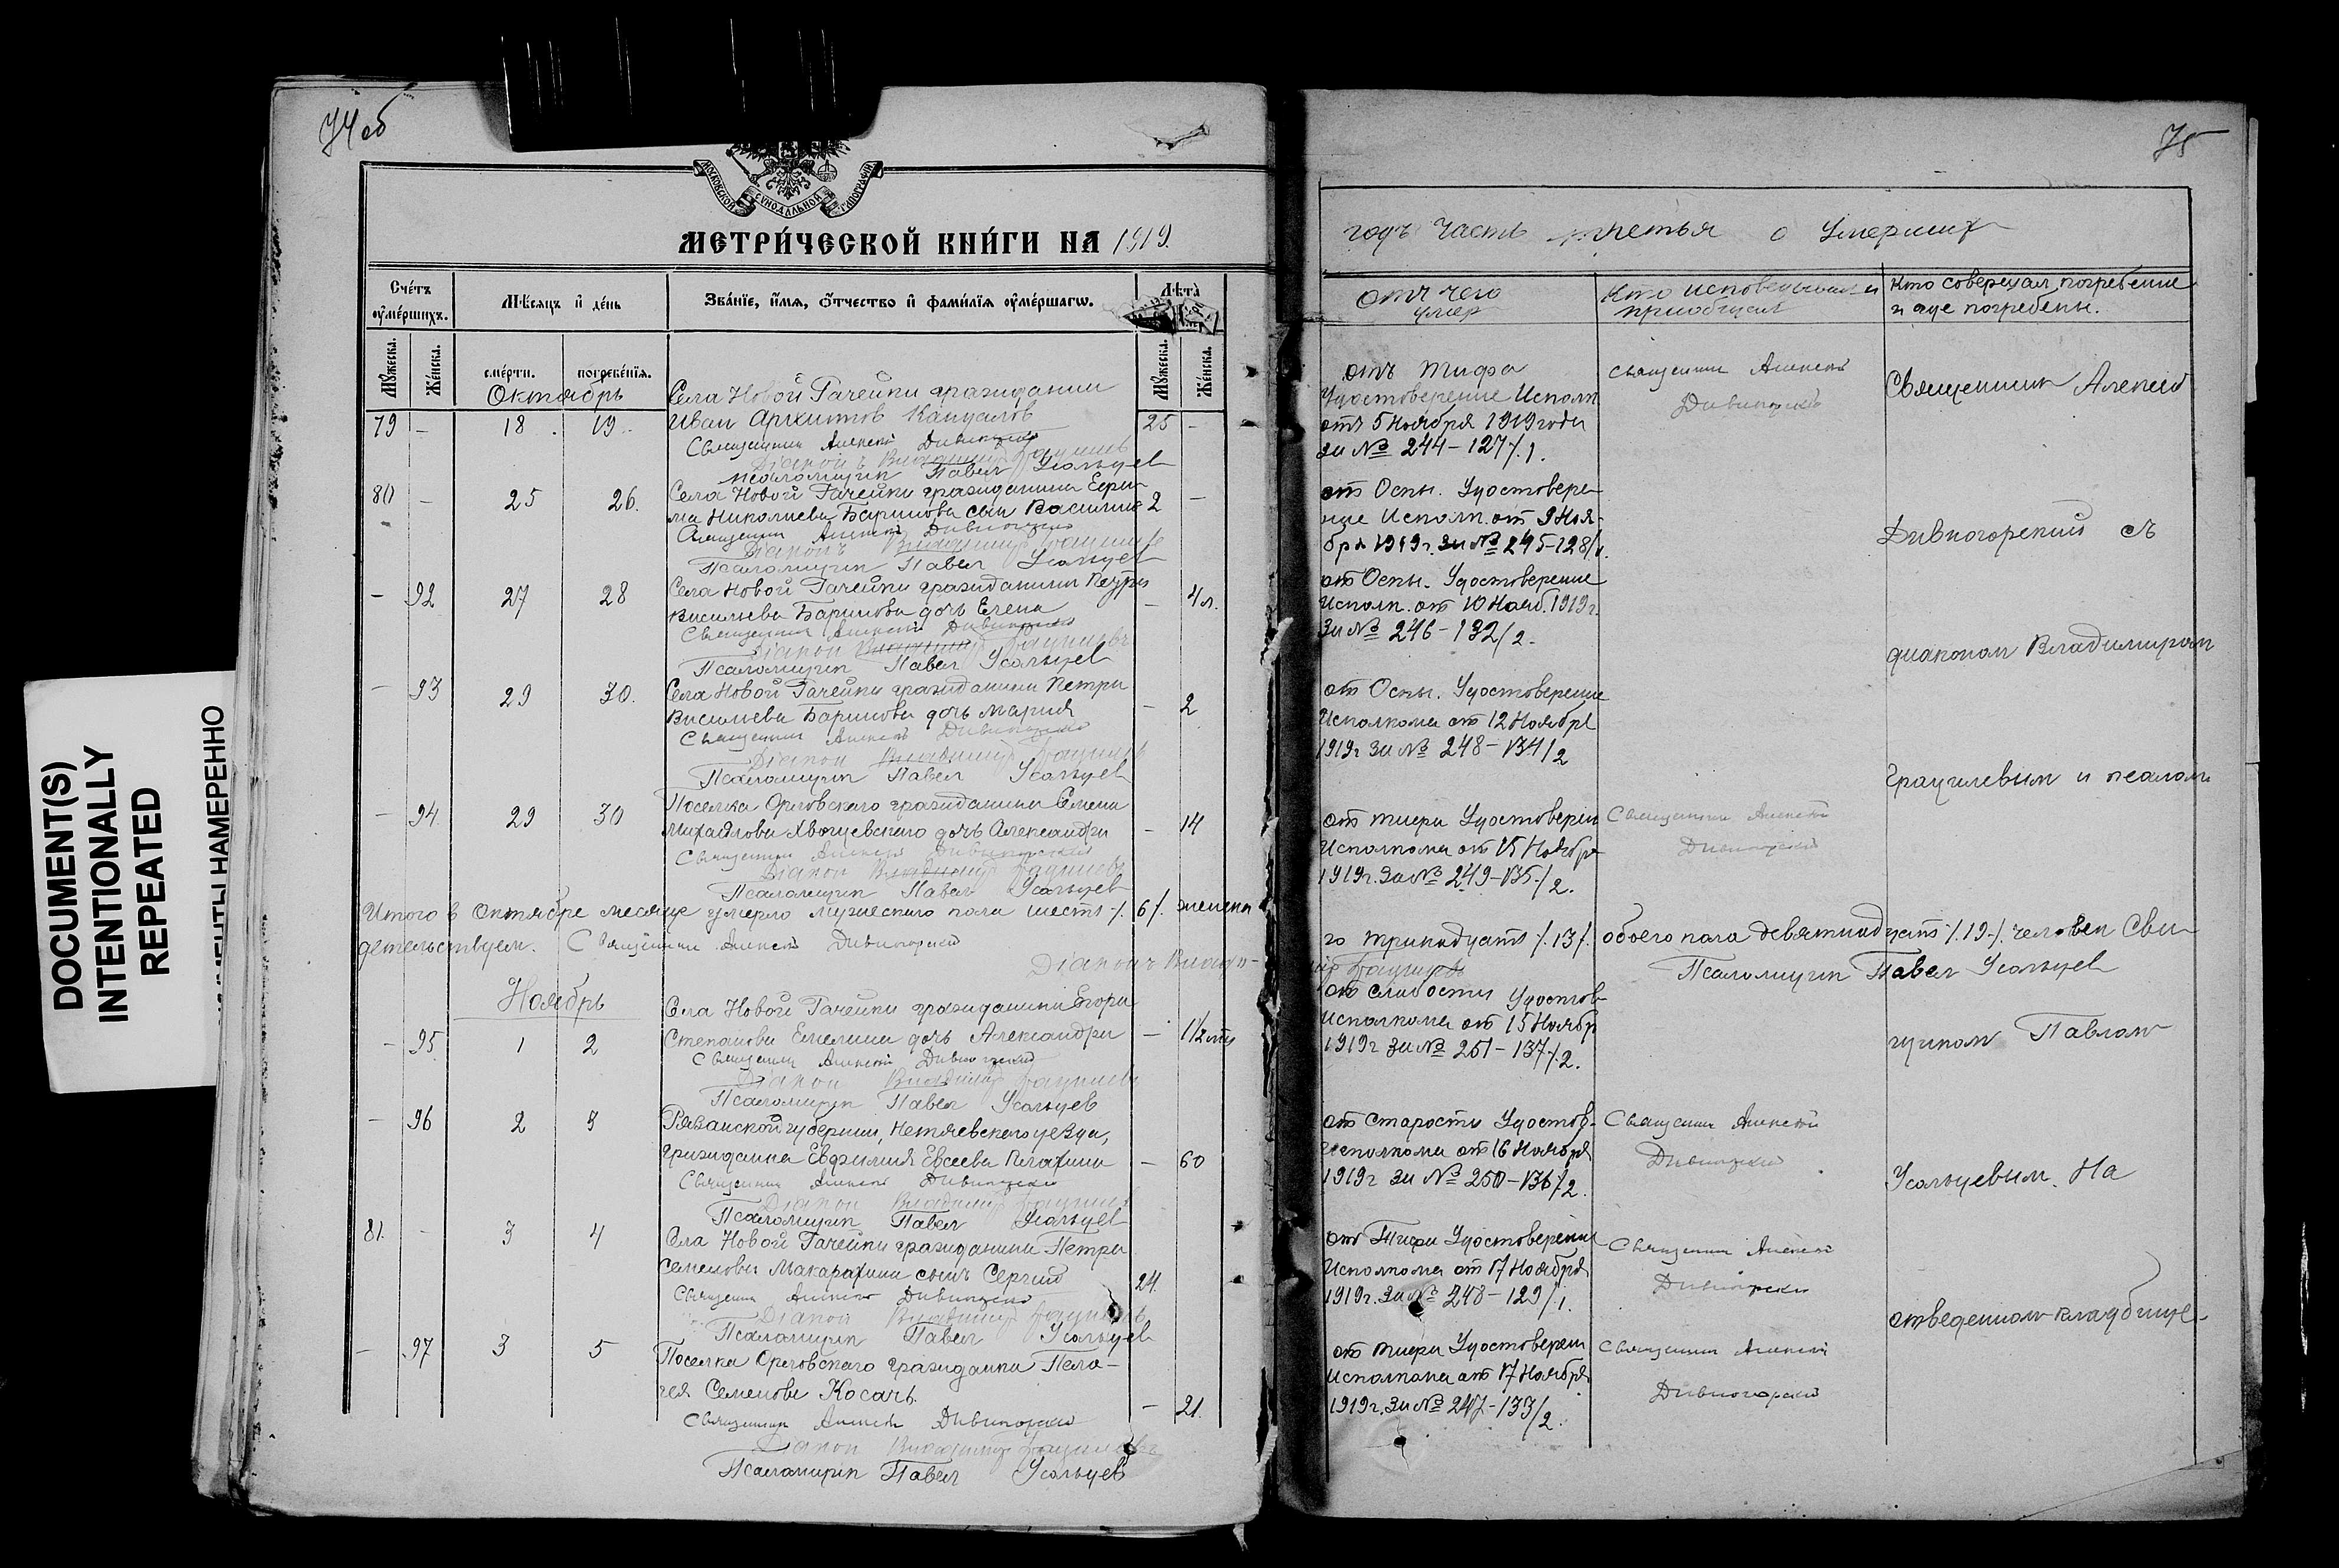 74 об
75
МОСКОВСКОЙ СѴНОДАЛЬНОЙ ТѴПОГРАФІИ
МЕТРИ́ЧЕСКОЙ КНИ́ГИ НА 1919.
годъ часть третья о умерших
Сче́тъ ᲂу҆ме́ршихъ.
Мѣ́сяцъ и҆ де́нь
Зва́нїе, и҆́мѧ, ѻ҆́тчество и҆ фамѝлїѧ ᲂу҆ме́ршагѡ.
Лѣ́та
отъ чего умер
Кто исповедывал и приобщал
Кто совершал погребение и где погребены.
Мꙋ́жеска.
Же́нска.
сме́рти.
погребе́нїѧ.
Мꙋ́жеска.
Же́нска.
Октябрь
79 – 18. 19. 25 –
Села Новой Гачейки гражданин
Иван Архипов
Священник Алексей Дивногорский
Диакон Владимир
Псаломщик Павел Усольцев
отъ тифа
Удостоверение Исполк
от 5 Ноября 1919 года
за № 244–127/1.
Священник Алексей
Дивногорский
80 – 25 26. 2 –
Села Новой Гачейки гражданина Ефи-
ма Николаева Баринова сын Василий
Священник Алексей Дивногорский
Диаконъ Владимир
Псаломщик Павел Усольцев
от Оспы. Удостовере-
ние Исполк. от 9 Ноя-
бря 1919 г. за № 245–128/1.
– 92 27 28 – 4 л.
Села Новой Гачейки гражданина Петра
Васильева Баринова дочь Елена
Священник Алексей Дивногорский
Диакон Владимир
Псаломщик Павел Усольцев
от Оспы. Удостоверение
Исполк. от 10 Нояб. 1919 г.
За № 246–132/2.
– 93 29 30. – 2
Села Новой Гачейки гражданина Петра
Васильева Баринова дочь Мария
Священник Алексей Дивногорский
Диакон Владимир
Псаломщик Павел Усольцев
от Оспы. Удостоверение
Исполкома от 12 Ноября
1919 г за № 248–134/2
– 94 29 30 – 14
Поселка Орловского гражданина Семена
Михайлова Хвощевского дочь Александра
Священник Алексей Дивногорский
Диакон Владимир
Псаломщик Павел Усольцев
от тифа Удостоверен
Исполкома от 15 Ноября
1919 г. за № 249–135/2.
Священник Алексей
Дивногорский
Итого в Октябре месяце умерло мужеского пола шесть /6/. женска
го тринадцать /13/. обоего пола девятнадцать /19/. человек Сви-
детельствуем. Священник Алексей Дивногорский
Диаконъ Влади-
мир
Псаломщик Павел Усольцев
Ноябрь
– 95 1 2 – 1½ года
Села Новой Гачейки гражданина Егора
Степанова Емелина дочь Александра
Священник Алексей Дивногорский
Диакон Владимир
Псаломщик Павел Усольцев
от слабости Удостов-
Исполкома от 15 Ноябр
1919 г за № 251–137/2.
– 96 2 3 – 60
Рязанской губернии, уезда,
гражданка Евфимия Евсеева
Священник Алексей Дивногорский
Диакон Владимир
Псаломщик Павел Усольцев
от старости Удостов-
Исполкома от 16 Ноября
1919 г за № 250–136/2.
Священник Алексей
Дивногорский
81. – 3 4 24
Села Новой Гачейки гражданина Петра
Семенова Макарахина сынъ Сергий
Священник Алексей Дивногорский
Диакон Владимир
Псаломщик Павел Усольцев
от Тифа Удостоверение
Исполкома от 17 Ноября
1919 г. за № 248–129/1.
Священник Алексей
Дивногорский
– 97 3 5 – 21.
Поселка Орловского гражданка Пела-
гея Семенова Косачь.
Священник Алексей Дивногорский
Диакон Владимир
Псаломщик Павел Усольцев
от тифа Удостоверен
Исполкома от 17 Ноября
1919 г. за № 247–133/2.
Священник Алексей
Дивногорский
Священник Алексей
Дивногорский съ
диаконом Владимиром
и псалом
щиком Павлом
Усольцевым. На
отведенном кладбище.
DOCUMENT(S)
INTENTIONALLY
REPEATED
НАМЕРЕННО